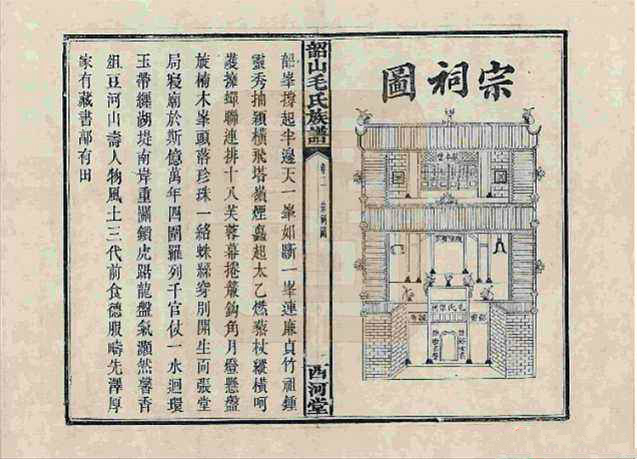 宗祠圖
韶山毛氏族譜
卷二
宗祠圖
西河堂
韶峯撐起半邊天一峯如斷一峯連廉貞竹祖鍾
靈秀抽穎橫飛塔嶺煙矗起太乙燃藜杖縱橫呵
護擁蟬聯連排十八芙蓉幕捲簾鈎角月燈懸盤
旋楠木峯頭落珍珠一絡蛛絲穿別開生面張堂
局寢廟於斯億萬年四圍羅列千官仗一水迴環
玉帶纏湖堤南岸重關鎖虎踞龍盤氣灝然馨香
俎豆河山壽人物風土三代前食德服疇先澤厚
家有藏書鄗有田